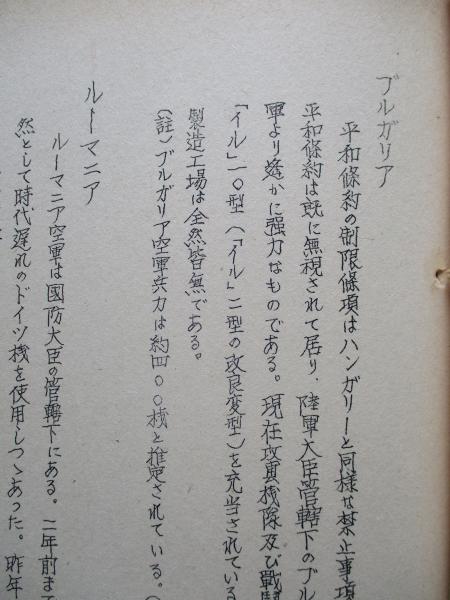 ブルガリア
平和條約の制限條項はハンガリーと同様な禁止事項
平和條約は既に無視されて居り、陸軍大臣管轄下のブル
軍より遙かに强力なものである。現在攻擊機隊及び戰鬪
「イル」一〇型(「イル」二型の改良変型)を充当されている
製造工場は全然皆無である。
(註)ブルガリア空軍兵力は約四〇〇機と推定されている。(
ルーマニア
ルーマニア空軍は國防大臣の管轄下にある。二年前まで
然として時代遅れのドイツ機を使用しつゝあった。昨年